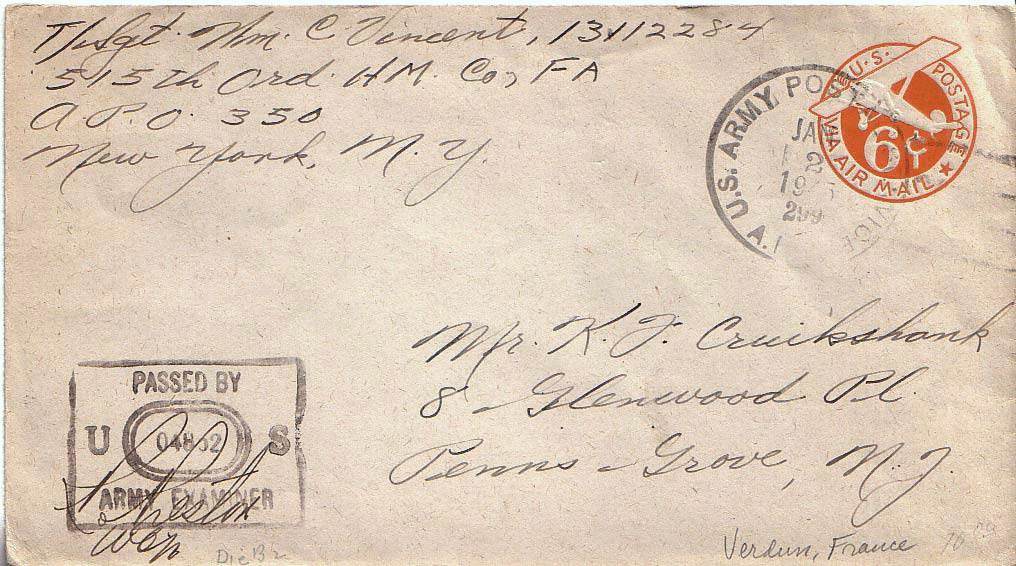 T/Sgt. Wm. C Vincent, 13112284
515th Ord. HM. Co, FA
A.P.O. 350
New York, N.Y.
U.S. ARMY POSTAL
JAN
2
19
299
A.
U.S. POSTAGE
6¢
VIA AIR MAIL
Mr. K. J. Cruikshank
8 Glenwood Pl.
Penns Grove, N.J.
PASSED BY
U S
ARMY EXAMINER
Die B2
Verdun, France